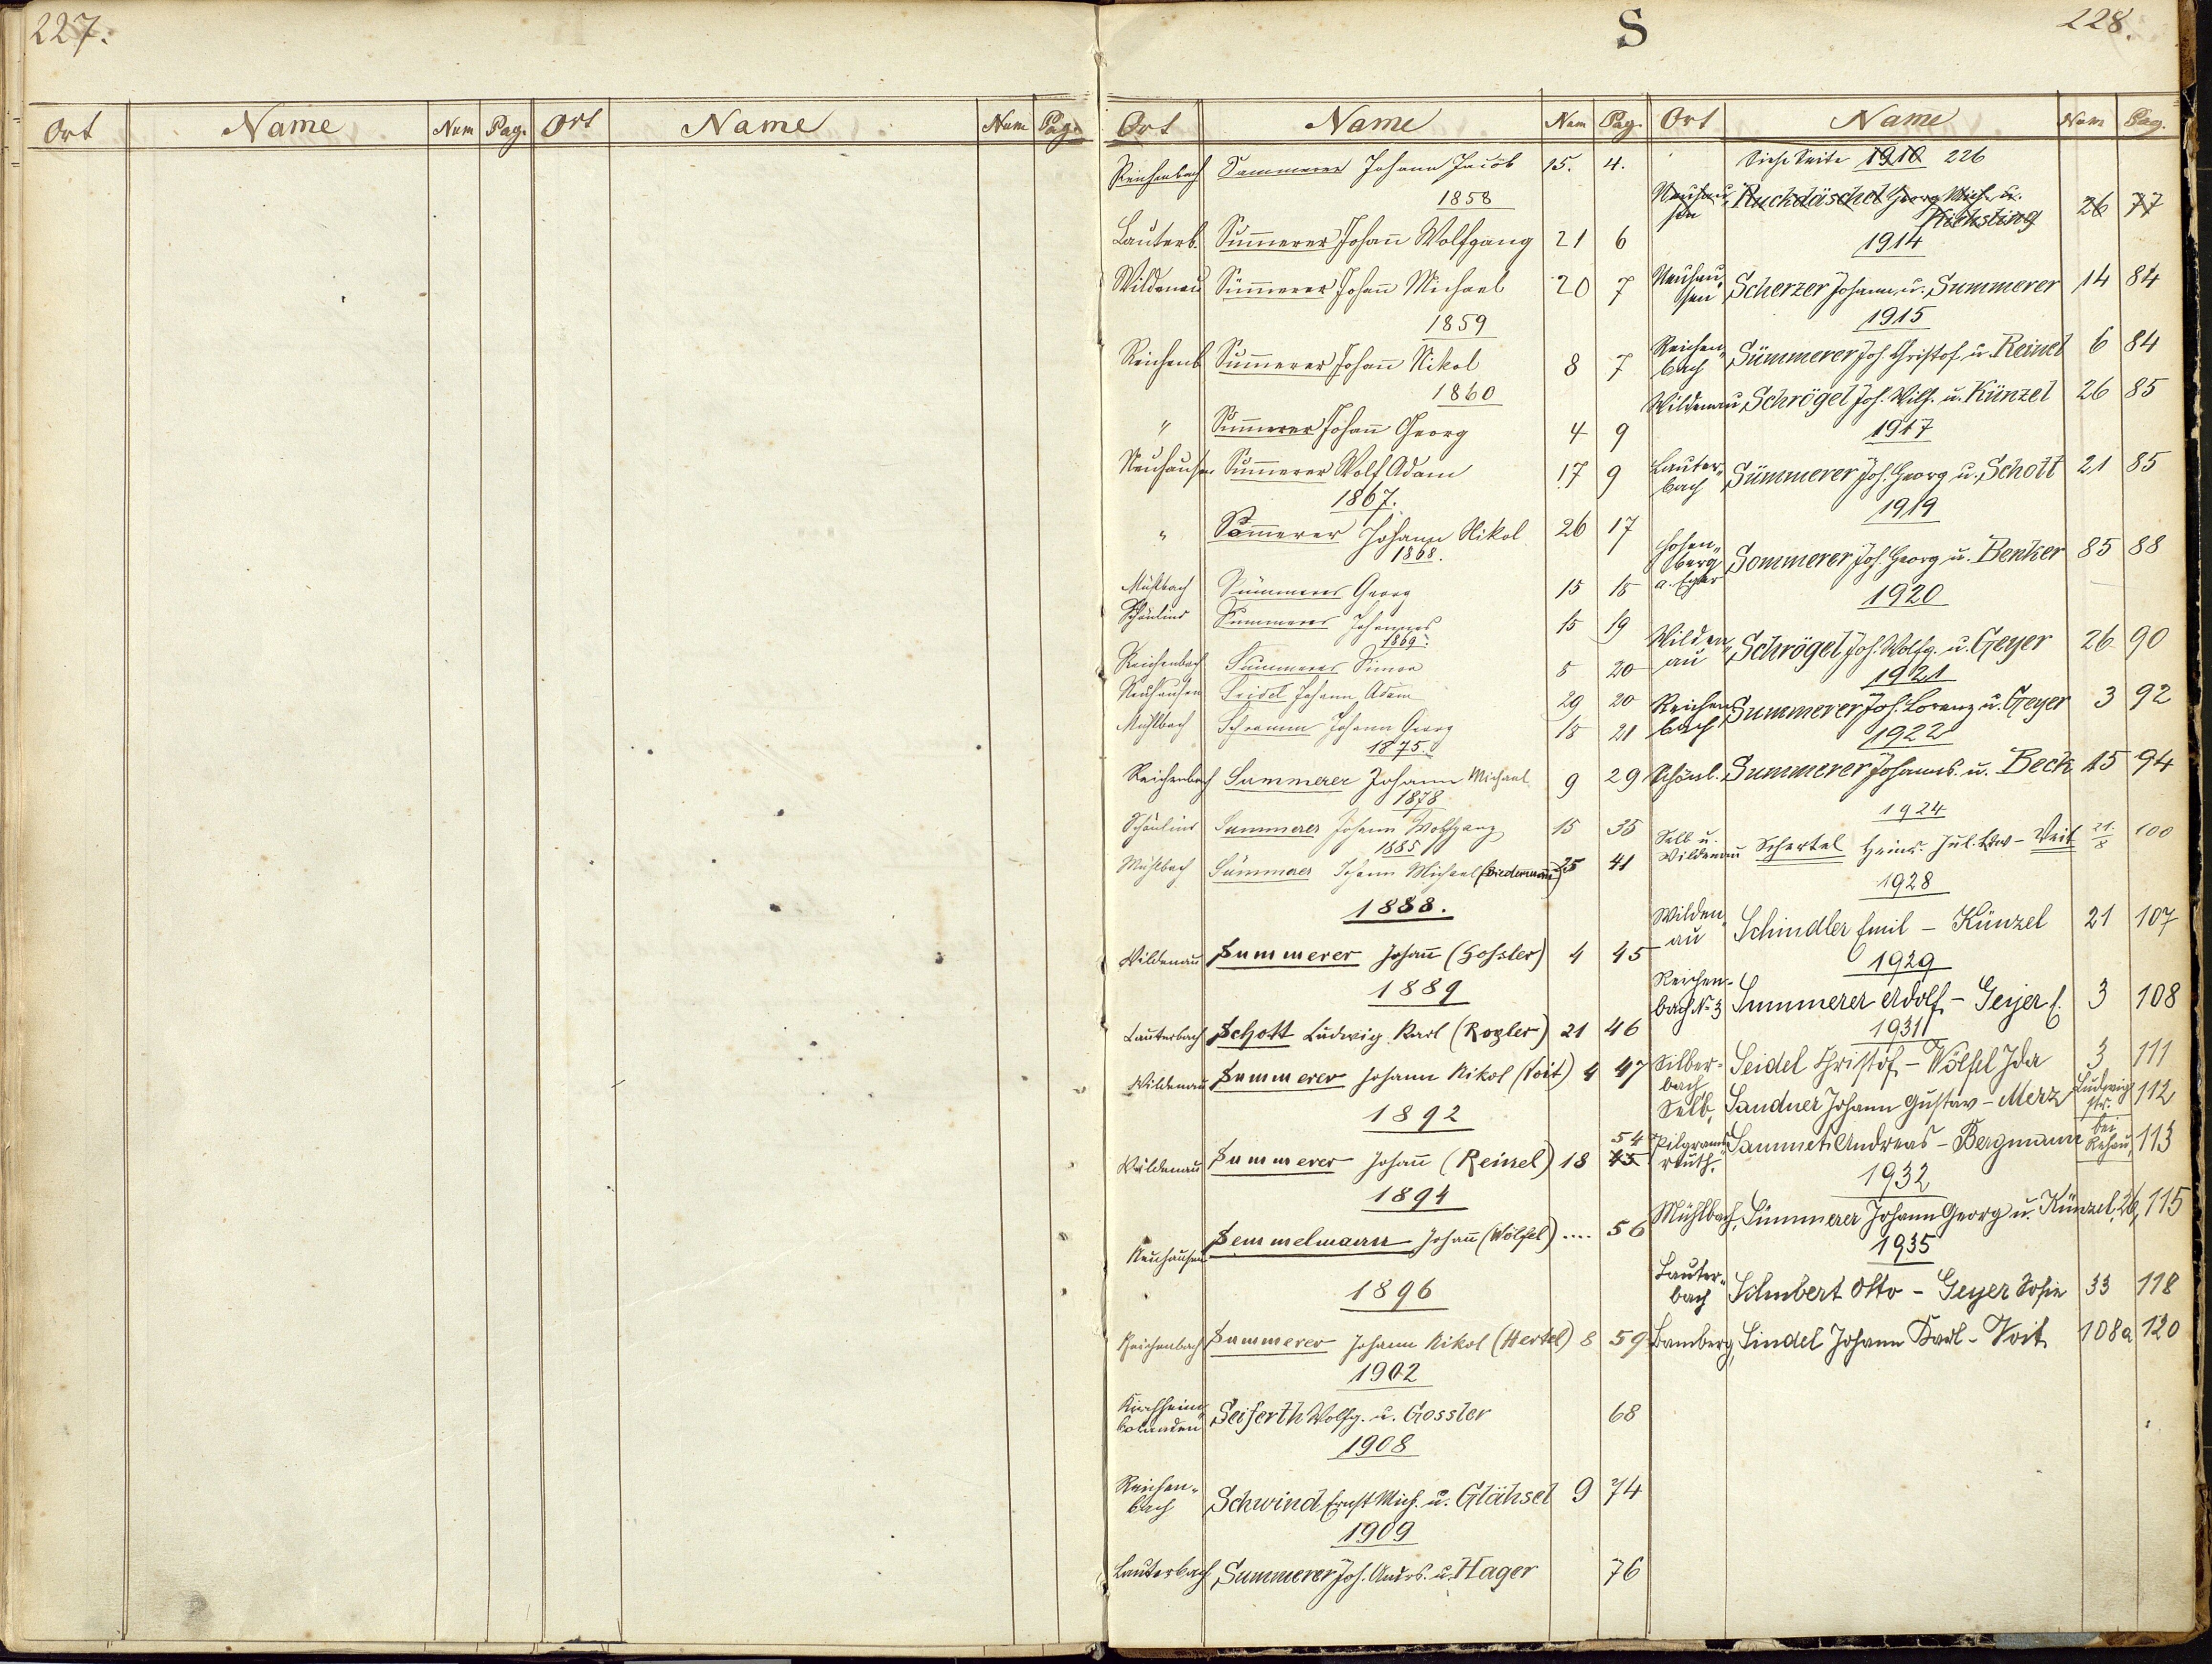 227.
Ort Name Num Pag. Ort Name Num Pag.
S
228.
Ort Name Num Pag.
Reichenbach Sammerer Johann Jacob 15. 4.
1858
Lauterb. Sum̄erer Johan̄ Wolfgang 21 6
Wildenau Sümmerer Johan̄ Michael 20 7
1859
Reichenb Sum̄erer Johan̄ Nikol 8 7
1860
" Sum̄erer Johan̄ Georg 4 9
Neuhausen Sum̄erer Wolf Adam 17 9
1867.
" Som̄erer Johann Nikol 26 17
1868.
Mühlbach Sümmerer Georg 15 18
Schönlind Summerer Johannes 15 19
1869.
Reichenbach Summerer Simon 8 20
Neuhausen Seidel Johann Adam 29 20
Mühlbach Schramm Johann Georg 18 21
1875.
Reichenbach Summerer Johann Michael 9 29
1878
Schönlind Summerer Johann Wolfgang 15 35
1885
Mühlbach Summerer Johann Michael (Biedermann) 25 41
1888.
Wildenau Summerer Johan̄ (Gossler) 4 45
1889
Lauterbach Schott Ludwig Karl (Rogler) 21 46
Wildenau Summerer Johann Nikol (Voit) 4 47
1892
Wildenau Summerer Johan̄ (Reinel) 18 54
1894
Neuhausen Semmelmann Johan̄ (Wölfel) .... 56
1896
Reichenbach Summerer Johann Nikol (Hertel) 8 59
1902
Kirchheim
bolanden Seiferth Wolfg. u. Gossler 68
1908
Reichen-
bach Schwind Ernst Mich. u. Glähsel 9 74
1909
Lauterbach Summerer Joh. Andrs. u. Hager 76
Ort Name Num Pag.
Siehe Seite 1910 226
Neuhau-
sen Ruckdäschel Georg Mich. u. 26 77
1914
Neuhau-
sen Scherzer Johann u. Summerer 14 84
1915
Reichen-
bach Sümmerer Joh. Christof u. Reinel 6 84
Wildenau Schrögel Joh. Wilh. u. Künzel 26 85
1917
Lauter-
bach Sümmerer Joh. Georg u. Schott 21 85
1919
Hohen-
berg
a. Eger Sommerer Joh. Georg u. Benker 85 88
1920
Wilden-
au Schrögel Joh. Wolfg. u. Geyer 26 90
1921
Reichen-
bach Summerer Joh. Lorenz u. Geyer 3 92
1922
Schönl. Summerer Johanns. u. Beck 15 94
1924
Selb u.
Wildenau Schertel Heinr. Jul. - Veit 21/8 100
1928
Wilden-
au Schindler Emil - Künzel 21 107
1929
Reichen-
bach No 3 Summerer Adolf - Geyer 3 108
1931
Silber-
bach Seidel Christof - Wölfel Ida 3 111
Selb, Sandner Johann Gustav - Merz Ludwig
str. 112
Pilgrams-
reuth, Sammet Andreas - Bergmann bei
Rehau, 113
1932
Mühlbach, Sümmerer Johann Georg u. Künzel, 26, 115
1935
Lauter-
bach Schubert Otto - Geyer Sofie 33 118
Bamberg, Sindel Johann Karl - Voit 108a 120